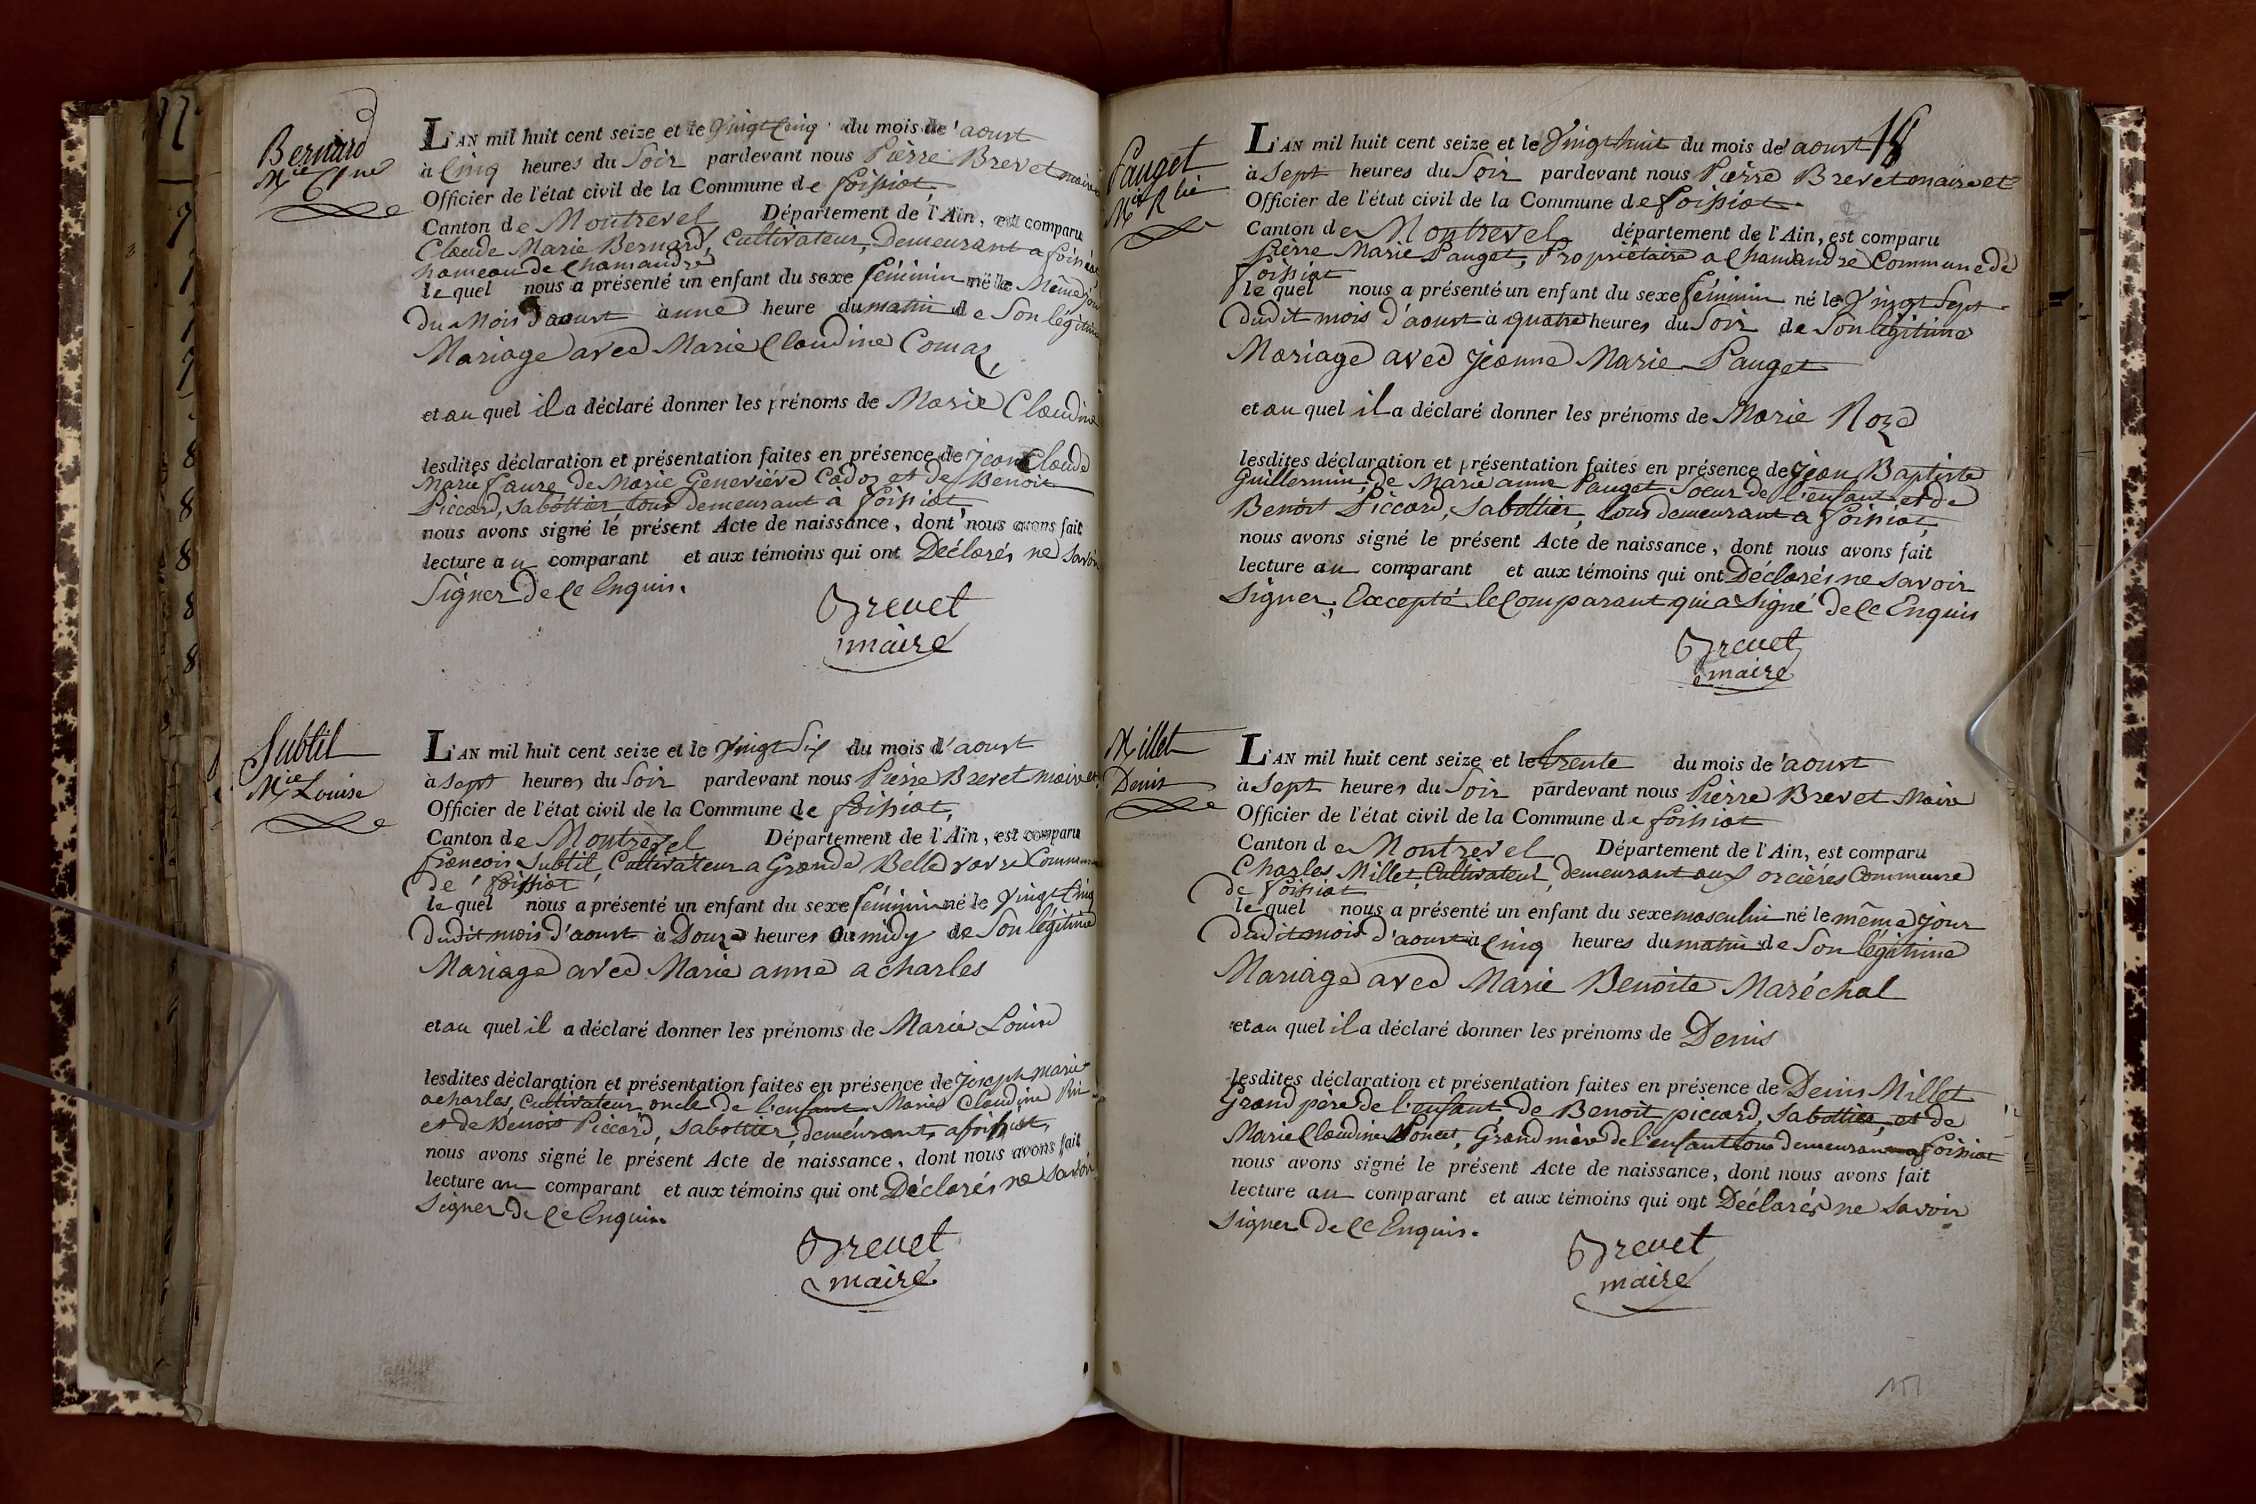 Bernard
Mie Cne
L'AN mil huit cent seize et le Vingt Cinq du mois de aoust
à Cinq heures du Soir pardevant nous Pierre Brevet maire
Officier de l'état civil de la Commune de foissiat
Canton de Montrevel Département de l'Ain, est comparu
Claude Marie Bernard, Cultivateur, Demeurant a foissiat
hameau de Chamandré
le quel nous a présenté un enfant du sexe féminin né le Même jour
du Mois d'aoust à une heure du matin de Son légitime
Mariage avec Marie Claudine Comas,
et au quel il a déclaré donner les prénoms de Marie Claudine
lesdites déclaration et présentation faites en présence de Jean Claude
Marie faure de Marie Geneviève Cadoz et de Benoit
Piccard, Sabottier tous demeurant à foissiat
nous avons signé le présent Acte de naissance, dont nous avons fait
lecture au comparant et aux témoins qui ont Déclarés ne Savoir
Signer De Ce Enquis.
Brevet
maire
Subtil
Mie Louise
L'AN mil huit cent seize et le Vingt Six du mois d'aoust
à Sept heures du Soir pardevant nous Pierre Brevet maire et
Officier de l'état civil de la Commune de foissiat,
Canton de Montrevel Département de l'Ain, est comparu
françois Subtil Cultivateur a Grande Belle vavre Commune
de foissiat
le quel nous a présenté un enfant du sexe féminin né le Vingt Cinq
Dudit mois d'aoust à Douze heures du midy de Son légitime
Mariage avec Marie anne acharles
et au quel il a déclaré donner les prénoms de Marie Louise
lesdites déclaration et présentation faites en présence de Joseph Marie
acharles, Cultivateur oncle de l'enfant Marie Claudine
et de Benoit Piccard, Sabottier, demeurant a foissiat,
nous avons signé le présent Acte de naissance, dont nous avons fait
lecture au comparant et aux témoins qui ont Déclarés ne Savoir
Signer De Ce Enquis.
Brevet
maire
18
Pauget
Mie Rze
L'AN mil huit cent seize et le Vingt huit du mois de aoust
à Sept heures du Soir pardevant nous Pierre Brevet maire et
Officier de l'état civil de la Commune de foissiat
Canton de Montrevel département de l'Ain, est comparu
Pierre Marie Pauget, Propriétaire a Chamandré Commune de
foissiat
le quel nous a présenté un enfant du sexe féminin né le Vingt Sept
Dudit mois d'aoust à quatre heures du Soir de Son légitime
Mariage avec Jeanne Marie Pauget
et au quel il a déclaré donner les prénoms de Marie Roze
lesdites déclaration et présentation faites en présence de Jean Baptiste
Guillermin, de Marie anne Pauget Soeur de l'enfant et de
Benoit Piccard, Sabottier, tous demeurant a foissiat,
nous avons signé le présent Acte de naissance, dont nous avons fait
lecture au comparant et aux témoins qui ont Déclarés ne savoir
Signer, Excepté le Comparant qui a Signé de Ce Enquis
Brevet
maire
Millet
Denis
L'AN mil huit cent seize et le trente du mois de aoust
à Sept heures du Soir pardevant nous Pierre Brevet Maire
Officier de l'état civil de la Commune de foissiat
Canton de Montrevel Département de l'Ain, est comparu
Charles Millet, Cultivateur, demeurant aux orcières Commune
de foissiat
le quel nous a présenté un enfant du sexe masculin né le même jour
Dudit mois d'aoust à Cinq heures du matin de Son légitime
Mariage avec Marie Benoite Maréchal
et au quel il a déclaré donner les prénoms de Denis
lesdites déclaration et présentation faites en présence de Denis Millet
Grand père de l'enfant, de Benoit piccard, Sabottier, et de
Marie Claudine Poncet, Grand mère de l'enfant tous demeurant a foissiat
nous avons signé le présent Acte de naissance, dont nous avons fait
lecture au comparant et aux témoins qui ont Déclarés ne Savoir
Signer de Ce Enquis.
Brevet
maire